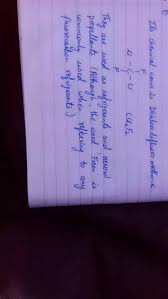 Its chemical name is Dichlorodifluoromethane.
F
Cl - C - Cl CCl2F2
F
They are used as refrigerants and aerosol
propellants (Although, the word Freon is
commonly used when referring to any
fluorocarbon refrigerants.)